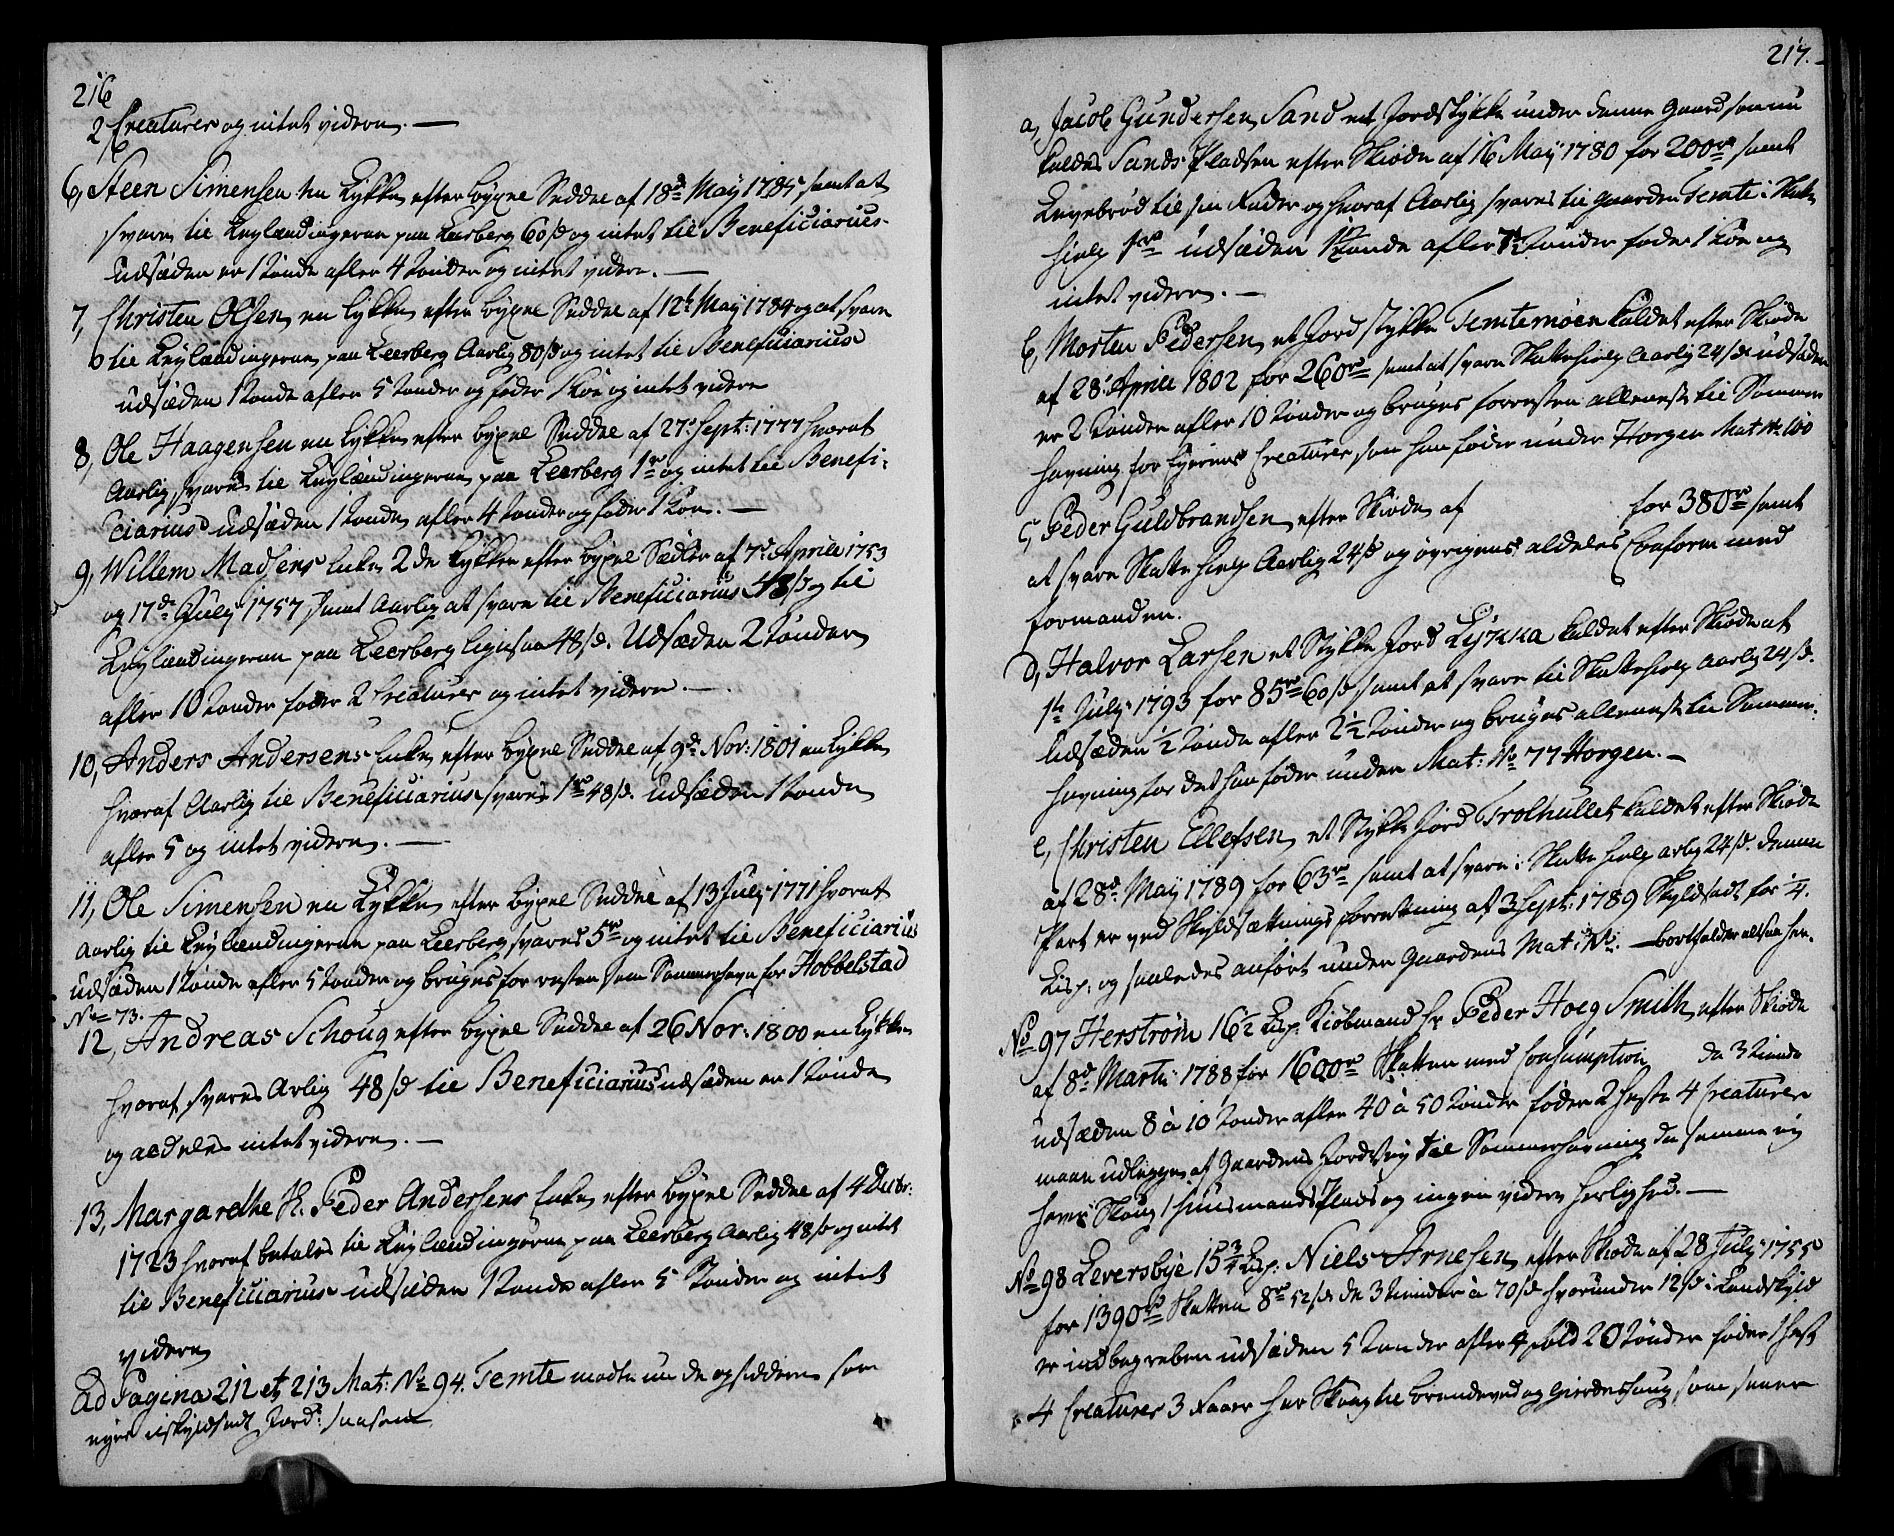 216
2 Creaturer og intet videre. —
6, Steen Simensen en Løkke efter bøxel Seddel af 18de May 1785 samt at
svare til Leylændingerne paa Leerberg 60 s og intet til Beneficiarius
udsæden er 1 Tønde afler 4 Tønder og intet videre. —
7, Christen Olsen en Løkke efter bøxel Seddel af 12te May 1784 og at svare
til Leylændingerne paa Leerberg Aarlig 80 s og intet til Beneficiarius
udsæden 1 Tønde afler 5 Tønder og føder 1 Koe og intet videre
8, Ole Haagensen en Løkke efter bøxel Seddel af 27de Sept: 1777 hvoraf
Aarlig svares til Leylændingerne paa Leerberg 1 rd og intet til Benefi-
ciarius udsæden 1 Tønde afler 4 Tønder og føder 1 Koe. —
9, Willem Madsens Enke 2de Løkker efter bøxel Sedler af 7de Aprill 1753
og 17de July 1757 samt Aarlig at svare til Beneficiarius 48 s og til
Leylændingerne paa Leerberg ligesaa 48 s. Udsæden 2 Tønder
afler 10 Tønder føder 2 Creaturer og intet videre. —
10, Anders Andersens Enke efter bøxel Seddel af 9de Nov: 1801 en Løkke
hvoraf Aarlig til Beneficiarius svares 1 rd 48 s. udsæden 1 Tønde
afler 5 og intet videre. —
11, Ole Simensen en Løkke efter bøxel Seddel af 13 July 1771 hvoraf
Aarlig til Leylændingerne paa Leerberg svares 5 rd og intet til Beneficiarius
udsæden 1 Tønde afler 5 Tønder og bruges for resten som Sommerhavn for Hobbelstad
No 73. —
12, Andreas Schoug efter bøxel Seddel af 26 Nov: 1800 en Løkke
hvoraf svares Arlig 48 s til Beneficiarius udsæden er 1 Tønde
og aldeles intet videre. —
13, Margarethe Sl. Peder Andersens Enke efter bøxel Seddel af 4 Decbr:
1723 hvoraf betales til Leylændingerne paa Leerberg Aarlig 48 s og intet
til Beneficiarius udsæden 1 Tønde afler 5 Tønder og intet
videre
Ad Pagina 212 et 213 Mat: No 94. Temte mødte en de opsiddere som
eyer uskyldsadt Jord: saasom
217.
a, Jacob Gundersen Sand et Jordstykke under denne Gaard som nu
kaldes Sands Pladsen efter Skiøde af 16 May 1780 for 200 rd samt
Levebrød til sin Fader og hvoraf Aarlig svares til gaarden Temte i Skatte
hielp 1 rd udsæden 1 Tønde afler 7 1/2 Tønder føder 1 Koe og
intet videre. —
b, Morten Pedersen et Jord stykke Temtemoen kaldet efter Skiøde
af 28de Aprill 1802 for 260 rd samt at svare Skattehielp Aarlig 24 s udsæden
er 2 Tønder afler 10 Tønder og bruges forresten alleneste til Sommer
havning for Eyerens Creaturer som han føder under Horgen Mat No 100
c, Peder Guldbrandsen efter Skiøde af for 380 rd samt
at svare Skatte hielp Aarlig 24 s og øvrigens aldeles Conform med
formanden.
d, Halvor Larsen et Stykke Jord Løkka kaldet efter Skiøde af
1te July 1793 for 85 rd 60 s samt at svare til Skattehielp Aarlig 24 s.
Udsæden 1/2 Tønde afler 2 1/2 Tønder og bruges alleneste til Sommer:
havning for det han føder under Mat: No 77 Horgen. —
e, Christen Ellefsen et Stykke Jord Trolhullet kaldet efter Skiøde
af 28de May 1789 for 63 rd samt at svare i Skatte hielp arlig 24 s. denne
Part er ved Skyldsætnings forretning af 3 Sept: 1789 Skyldsadt for 1/4
Lisp: og saaledes anført under Gaardens Mat: No. — bortfalder altsaa her.
No 97 Herstrøm 16 1/2 Lisp. Kiøbmand Hr Peder Hoeg Smith efter Skiøde
af 8de Marti 1788 for 1600 rd Skatten med Consumption da 3 tiende
udsæden 8 à 10 Tønder afler 40 à 50 Tønder føder 2 Heste 4 Creaturer
maae udlegge af Gaardens Jordvey til Sommerhavning da samme ey
haver Skoug 1 huusmands Plads og ingen videre herlighed. —
No 98 Leversbye 15 3/4 Lisp: Niels Arnesen efter Skiøde af 28 July 1755
for 1390 rd Skatten 8 rd 52 s de 3 tiender à 70 s hvorunder 12 s i Landskyld
er indbegreben udsæden 5 Tønder afler 4 fold 20 Tønder føder 1 hest
4 Creaturer 3 Faaer har Skoug til brændeved og gierdeskoug som samme